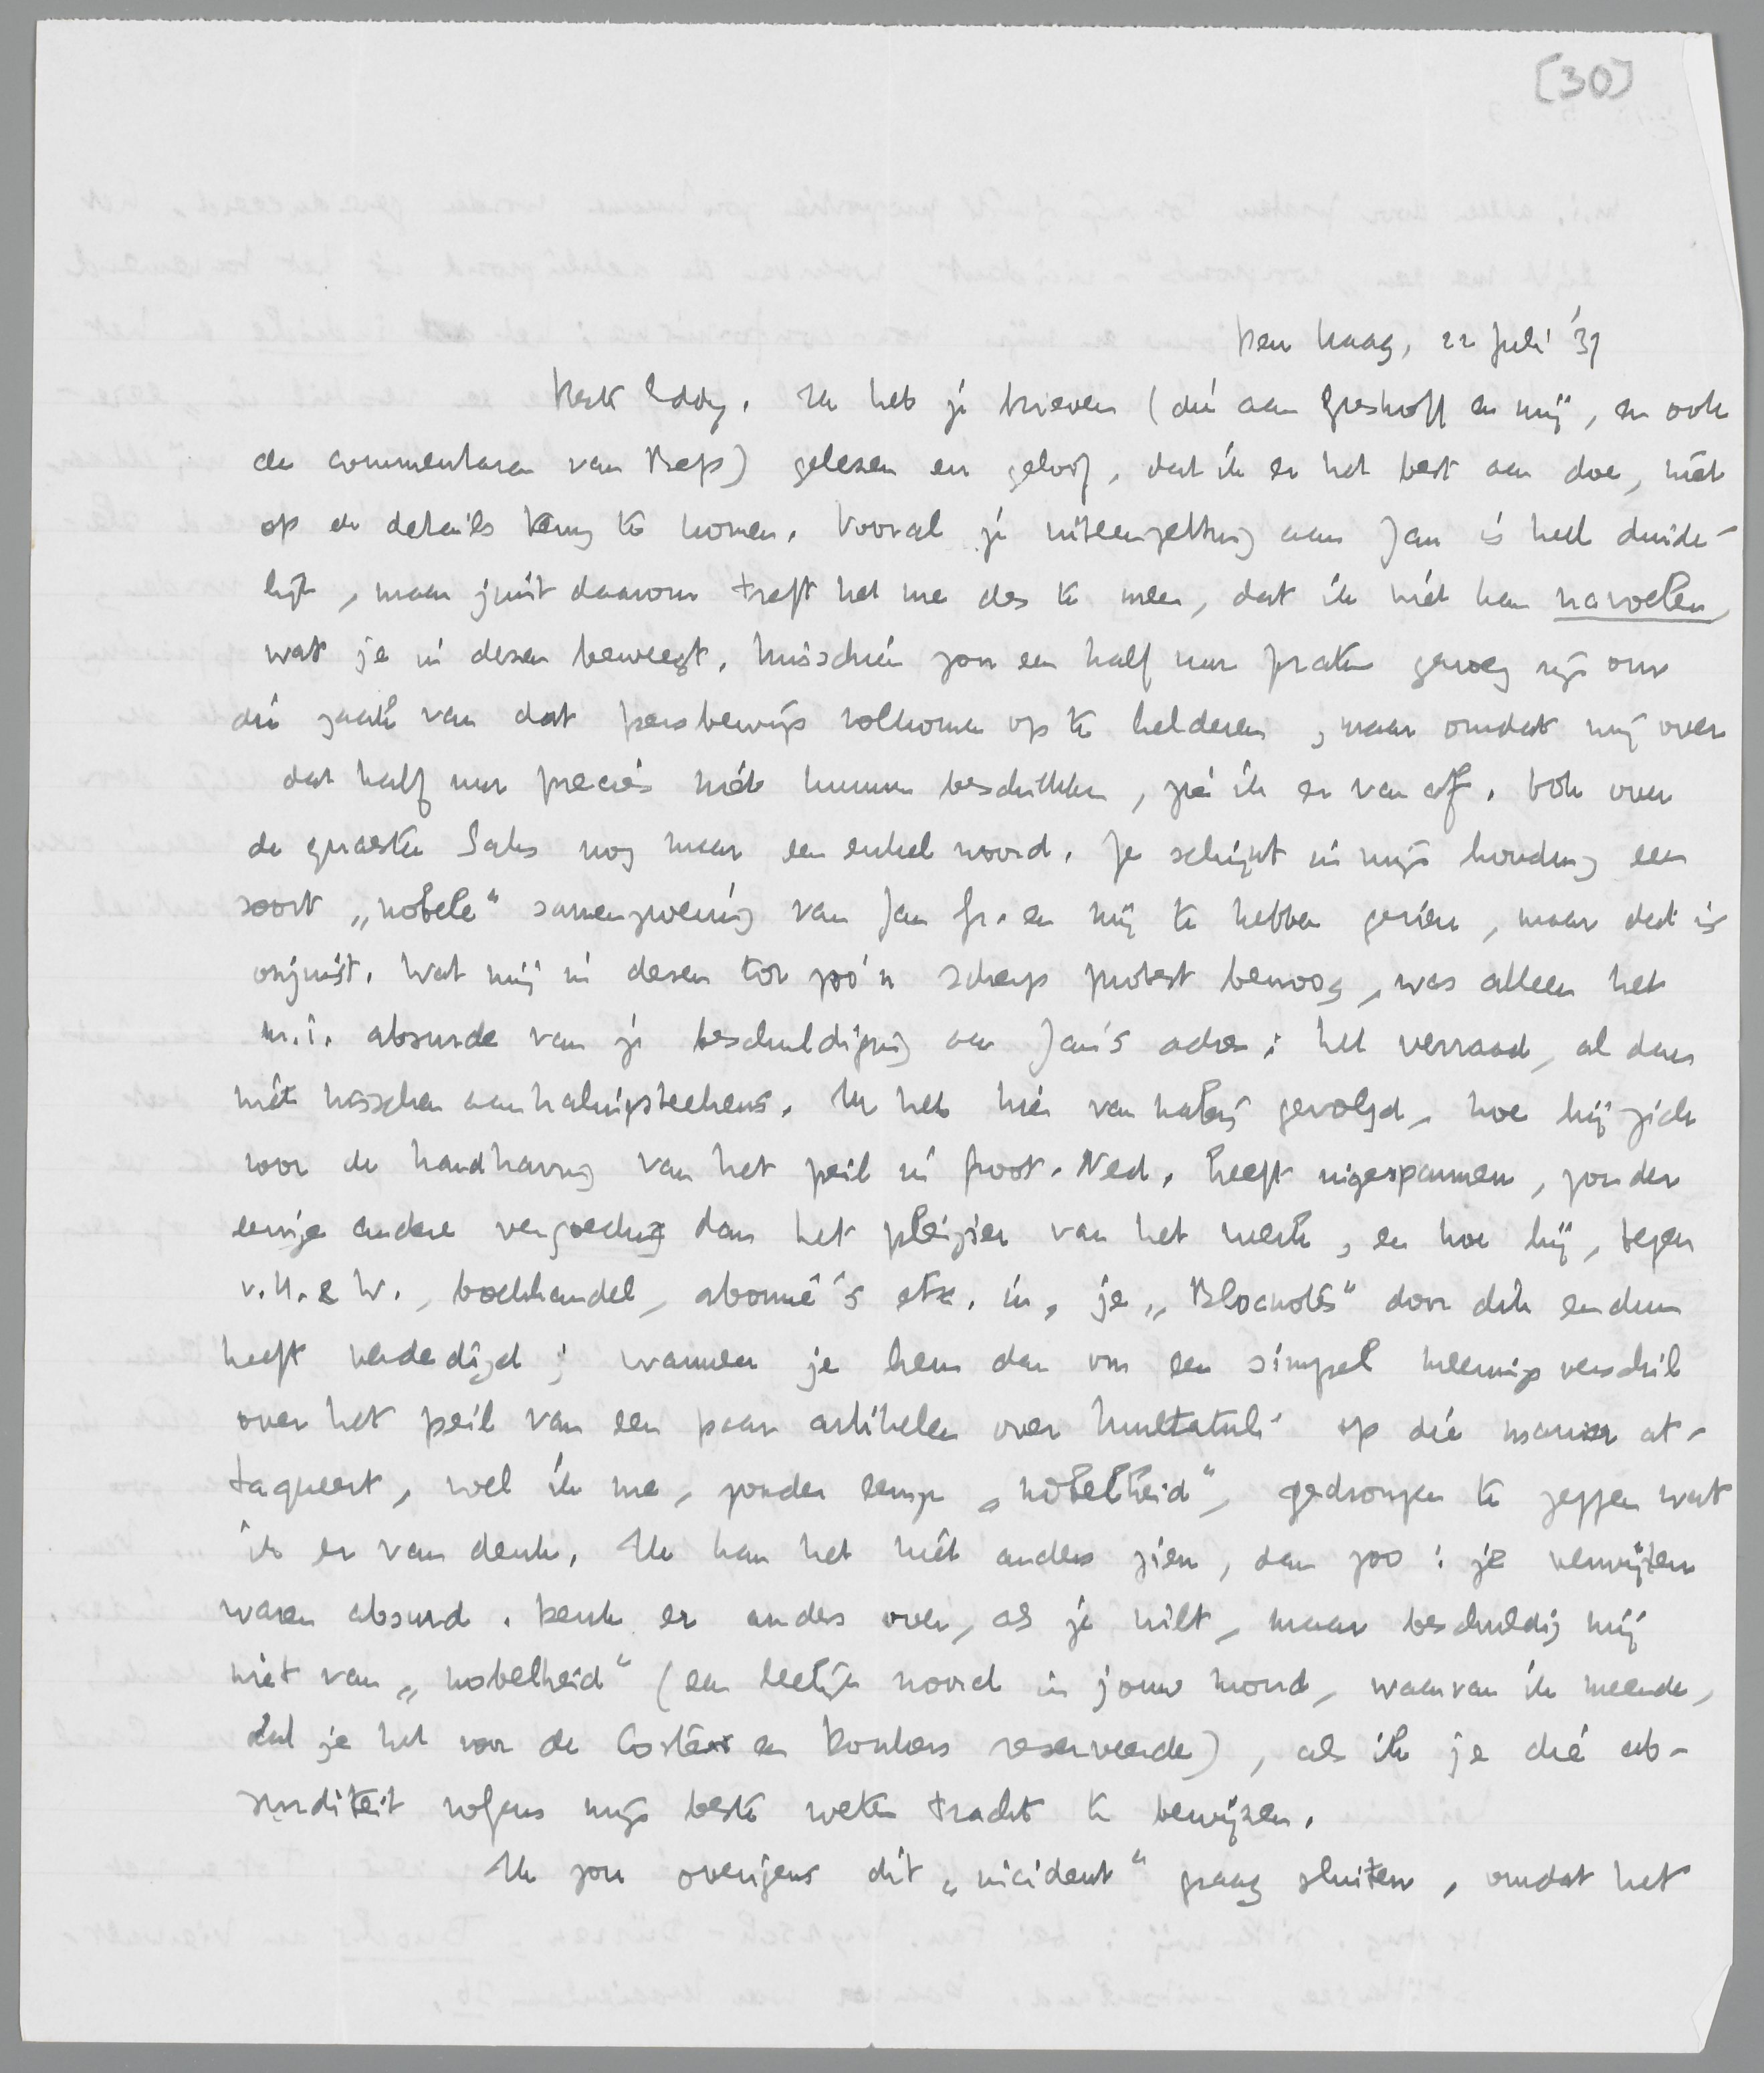 [30]
Den Haag, 22 Juli '37
Beste Eddy. Ik heb je brieven (die aan Greshoff en mij, en ook
de commentaren van Bep) gelezen en geloof, dat ik er het best aan doe, niet
op de details terug te komen. Vooral je uiteenzetting aan Jan is heel duide-
lijk, maar juist daarom treft het me des te meer, dat ik niet kan navoelen,
wat je in dezen beweegt. Misschien zou een half uur praten genoeg zijn om
die zaak van dat persbewijs volkomen op te helderen, maar omdat wij over
dat half uur precies niet kunnen beschikken, zie ik er van af. Ook over
de quaestie Saks nog maar een enkel woord. Je schijnt in mijn houding een
soort „nobele" samenzwering van Jan Gr. en mij te hebben gezien, maar dat is
onjuist. Wat mij in dezen tot zoo'n scherp protest bewoog, was alleen het
m.i. absurde van je beschuldiging aan Jan's adres: het verraad, al dan
niet tusschen aanhalingsteekens. Ik heb hier van nabij gevolgd, hoe hij zich
voor de handhaving van het peil in Groot. Ned. heeft ingespannen, zonder
eenige andere vergoeding dan het plezier van het werk, en hoe hij, tegen
v.H. & W., boekhandel, abonné's etc. in, je „Blocnotes" door dik en dun
heeft verdedigd; wanneer je hem dan om een simpel meeningsverschil
over het peil van een paar artikelen over Multatuli op die manier at-
taqueert, voel ik me, zonder eenige „nobelheid", gedrongen te zeggen wat
ik er van denk. Ik kan het niet anders zien, dan zoo: je verwijten
waren absurd. Denk er anders over, als je wilt, maar beschuldig mij
niet van „nobelheid" (een leelijk woord in jouw mond, waarvan ik meende,
dat je het voor de Costers en Donkers reserveerde), als ik je die ab-
surditeit volgens mijn beste weten tracht te bewijzen.
Ik zou overigens dit „incident" graag sluiten, omdat het